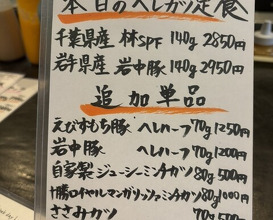 本日のヘレカツ定食
千葉県産 林SPF 140g 2850円
岩手県産 岩中豚 140g 2950円
追加単品
えびすもち豚 ヘレハーフ 70g 1250円
岩中豚 ヘレハーフ 70g 1200円
自家製ジューシーミンチカツ 80g 500円
十勝ロイヤルマンガリッツァミンチカツ 80g 1000円
ささみカツ 70g 500円